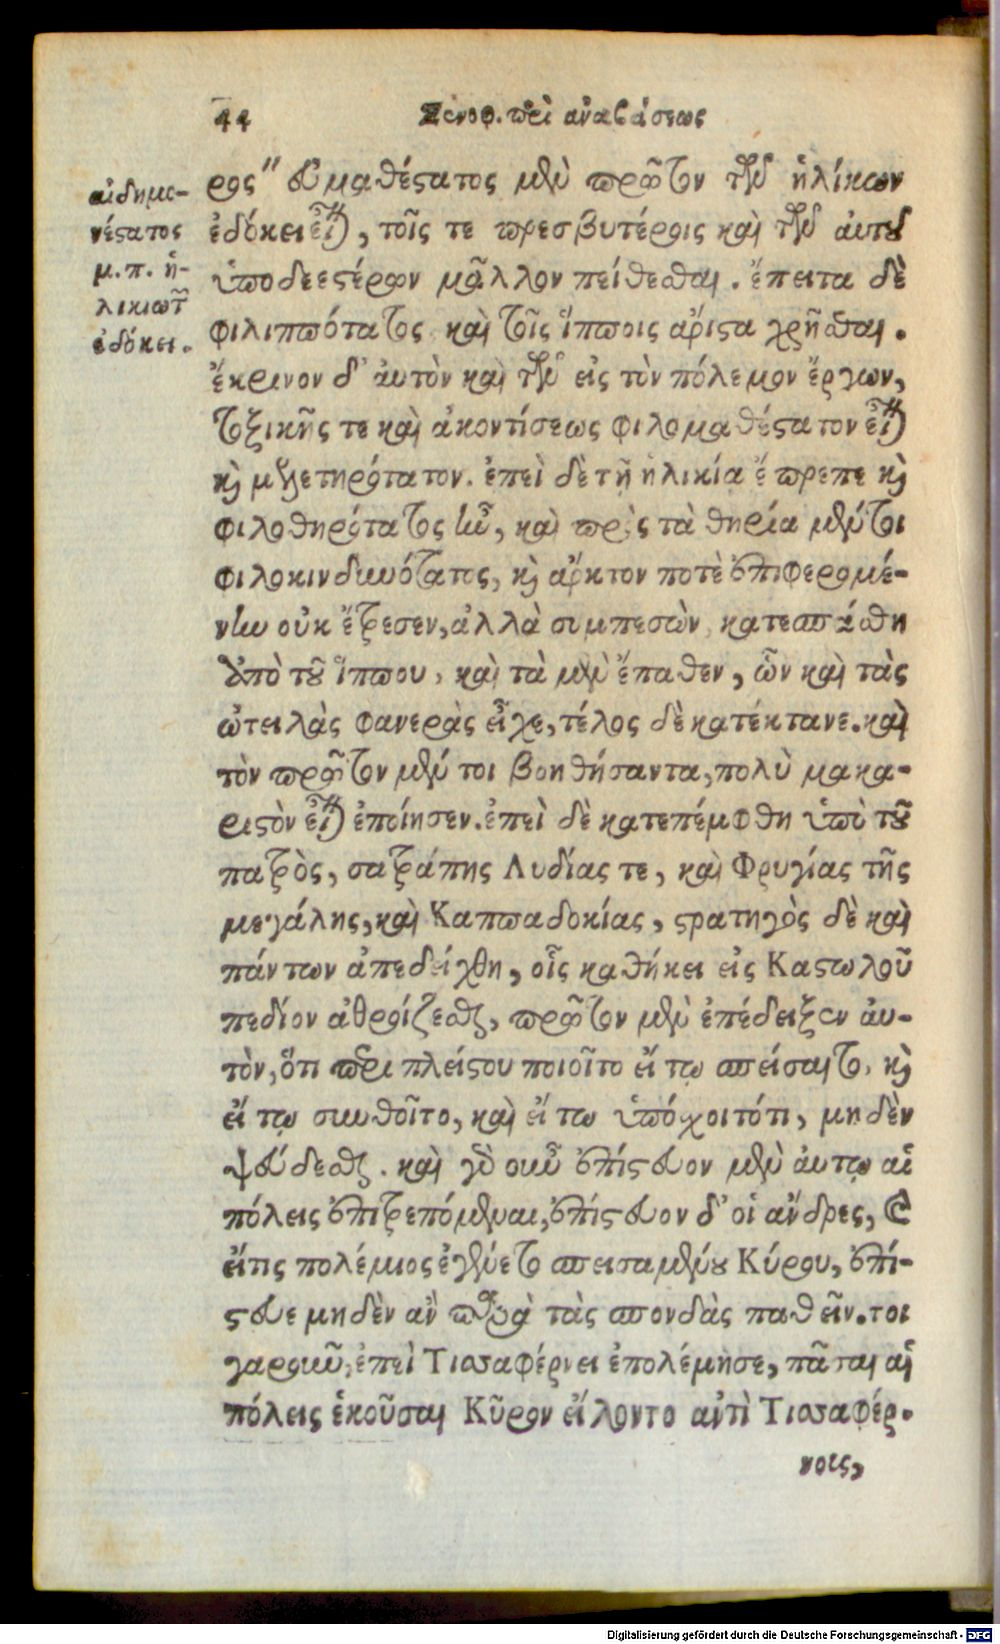 44
Ξενοφ. περὶ ἀναβάσεως
αἰδημο-
νέστατος
μ. π. ἡ-
λικιωτῶν
ἐδόκει.
ρος" εὐμαθέστατος μὲν πρῶτον τῶν ἡλίκων
ἐδόκει εἶναι, τοῖς τε πρεσβυτέροις καὶ τῶν αὐτοῦ
ὑποδεεστέρων μᾶλλον πείθεσθαι. ἔπειτα δὲ
φιλιππότατος καὶ τοῖς ἵπποις ἄριστα χρῆσθαι.
ἔκρινον δ' αὐτὸν καὶ τῶν εἰς τὸν πόλεμον ἔργων,
τοξικῆς τε καὶ ἀκοντίσεως φιλομαθέστατον εἶναι
καὶ μελετηρότατον. ἐπεὶ δὲ τῇ ἡλικίᾳ ἔπρεπε καὶ
φιλοθηρότατος ἦν, καὶ πρὸς τὰ θηρία μέντοι
φιλοκινδυνότατος, καὶ ἄρκτον ποτὲ ἐπιφερομέ-
νην οὐκ ἔτρεσεν, ἀλλὰ συμπεσὼν κατεσπάσθη
ἀπὸ τοῦ ἵππου, καὶ τὰ μὲν ἔπαθεν, ὧν καὶ τὰς
ὠτειλὰς φανερὰς εἶχε, τέλος δὲ κατέκτανε. καὶ
τὸν πρῶτον μέν τοι βοηθήσαντα, πολὺ μακα-
ριστὸν εἶναι ἐποίησεν. ἐπεὶ δὲ κατεπέμφθη ὑπὸ τοῦ
πατρὸς, σατράπης Λυδίας τε, καὶ Φρυγίας τῆς
μεγάλης, καὶ Καππαδοκίας, στρατηγὸς δὲ καὶ
πάντων ἀπεδείχθη, οἷς καθήκει εἰς Καστωλοῦ
πεδίον ἀθροίζεσθαι, πρῶτον μὲν ἐπέδειξεν αὑ-
τὸν, ὅτι περὶ πλείστου ποιοῖτο εἴ τῳ σπείσαιτο, καὶ
εἴ τῳ συνθοῖτο, καὶ εἴ τῳ ὑπόχοιτό τι, μηδὲν
ψεύδεσθαι. καὶ γὰρ οὖν ἐπίστευον μὲν αὐτῷ αἱ
πόλεις ἐπιτρεπόμεναι, ἐπίστευον δ' οἱ ἄνδρες, καὶ
εἴ τις πολέμιος ἐγένετο σπεισαμένου Κύρου, ἐπί-
στευε μηδὲν ἂν παρὰ τὰς σπονδὰς παθεῖν. τοι
γαροῦν, ἐπεὶ Τισσαφέρνει ἐπολέμησε, πᾶσαι αἱ
πόλεις ἑκοῦσαι Κῦρον εἵλοντο ἀντὶ Τισσαφέρ-
νοις,